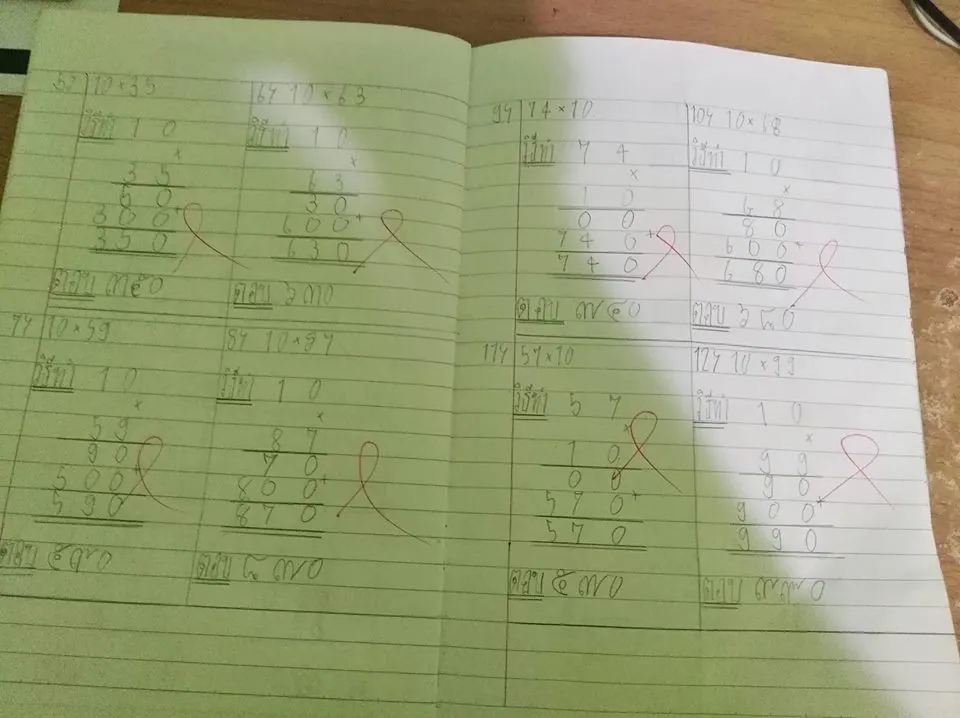 5) 10×35
วิธีทำ 1 0
×
3 5
5 0
3 0 0 +
3 5 0
ตอบ ๓๕๐
6) 10×63
วิธีทำ 1 0
×
6 3
3 0
6 0 0 +
6 3 0
ตอบ ๖๓๐
7) 10×59
วิธีทำ 1 0
×
5 9
9 0
5 0 0 +
5 9 0
ตอบ ๕๙๐
8) 10×87
วิธีทำ 1 0
×
8 7
7 0
8 0 0 +
8 7 0
ตอบ ๘๗๐
9) 74×10
วิธีทำ 7 4
×
1 0
0 0
7 4 0 +
7 4 0
ตอบ ๗๔๐
10) 10×68
วิธีทำ 1 0
×
6 8
8 0
6 0 0 +
6 8 0
ตอบ ๖๘๐
11) 57×10
วิธีทำ 5 7
×
1 0
0 0
5 7 0 +
5 7 0
ตอบ ๕๗๐
12) 10×99
วิธีทำ 1 0
×
9 9
9 0
9 0 0 +
9 9 0
ตอบ ๙๙๐